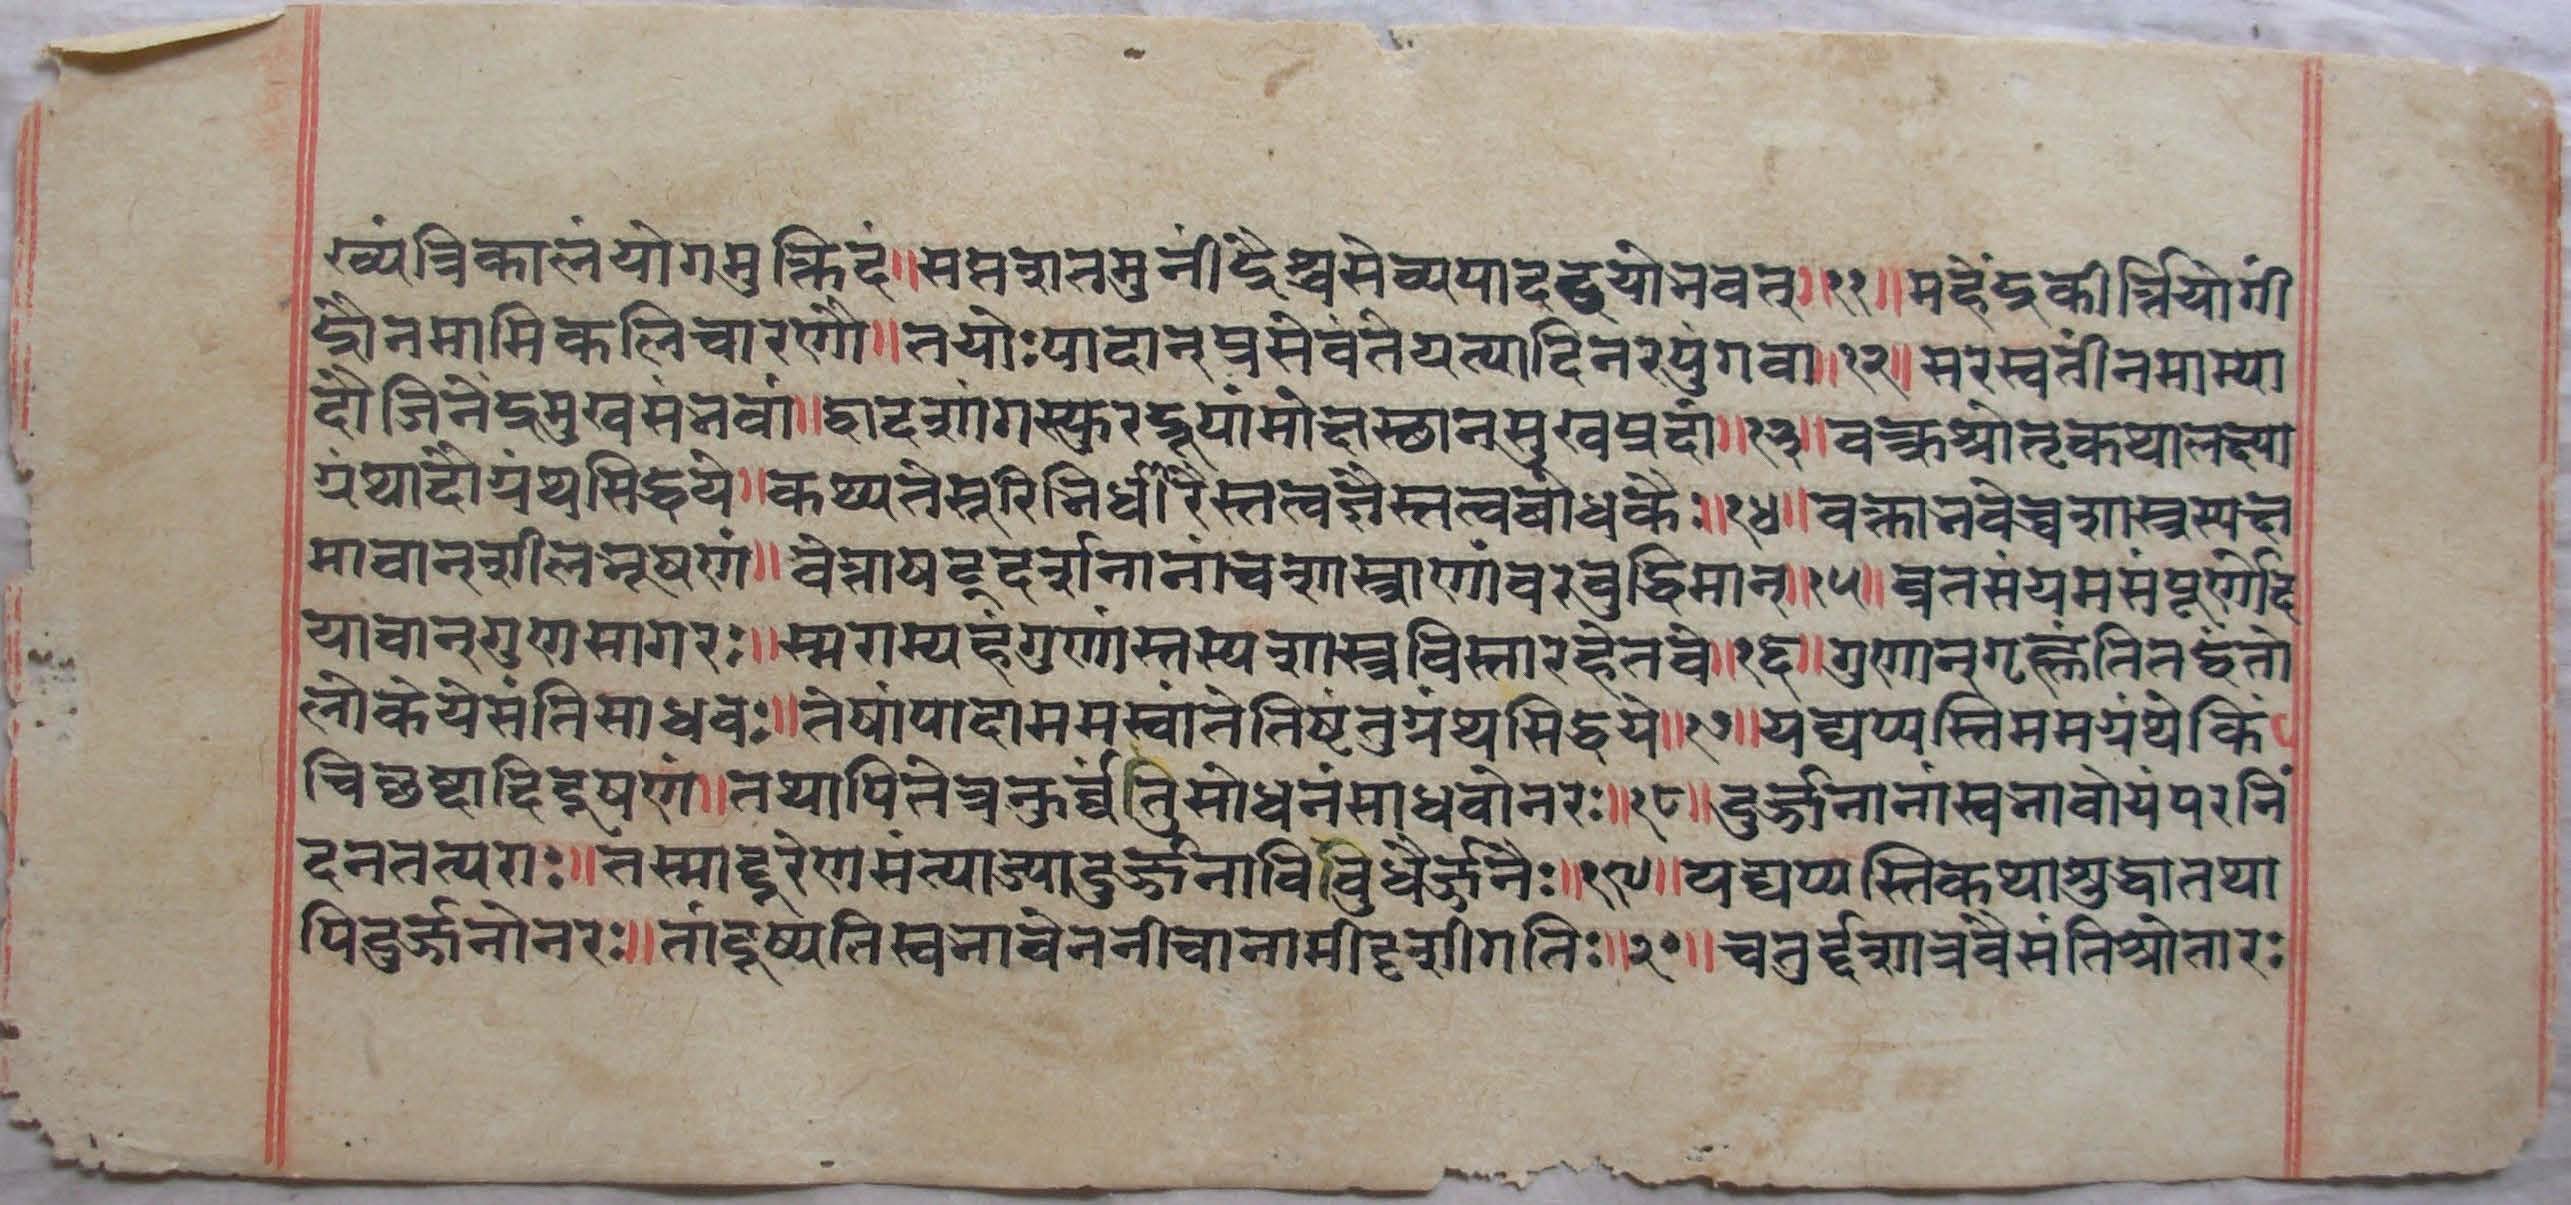 ख्यंत्रिकालंयोगमुक्तिदं॥सप्तशतमुनींद्रैश्चसेव्यपादद्वयोभवत्॥११॥महेंद्रकीर्त्तियोगीं
द्रौनमामिकलिचारणौ॥तयोःपादान्प्रसेवंतेयत्यादिनरपुंगवा॥१२॥सरस्वतींनमाम्या
दौजिनेंद्रमुखसंभवां॥द्वादशांगस्फुरद्रूपांमोक्षस्थानसुखप्रदां॥१३॥वक्तृश्रोतृकथालक्ष्या
ग्रंथादौग्रंथसिद्धये॥कथ्यतेसूरिभिर्धीरैस्तत्वज्ञैस्तत्वबोधकैः॥१४॥वक्ताभवेच्चशास्त्रस्यक्ष
मावान्शीलभूषणं॥वेत्ताषट्दर्शनानांचशास्त्राणांवरबुद्धिमान्॥१५॥व्रतसंयमसंपूर्णोद
यावान्गुणसागरः॥स्मराम्यहंगुणांस्तस्यशास्त्रविस्तारहेतवे॥१६॥गुणान्गृह्णंतितद्वंतो
लोकेयेसंतिसाधवः॥तेषांपादाममस्वांतेतिष्टंतुग्रंथसिद्धये॥१७॥यद्यप्यस्तिममग्रंथेकिं
चिछब्दादिदूषणं॥तथापितेत्रकुर्व्वंतुसोधनंसाधवोनरः॥१८॥दुर्ज्जनानांस्वभावोयंपरनिं
दनतत्परः॥तस्माद्दूरेणसंत्याज्यादुर्ज्जनाविबुधैर्ज्जनैः॥१९॥यद्यप्यस्तिकथाशुद्धातथा
पिदुर्ज्जनोनरः॥तांदूष्यतिस्वभावेननीचानामीदृशीगतिः॥२०॥चतुर्द्दशात्रवैसंतिश्रोतारः